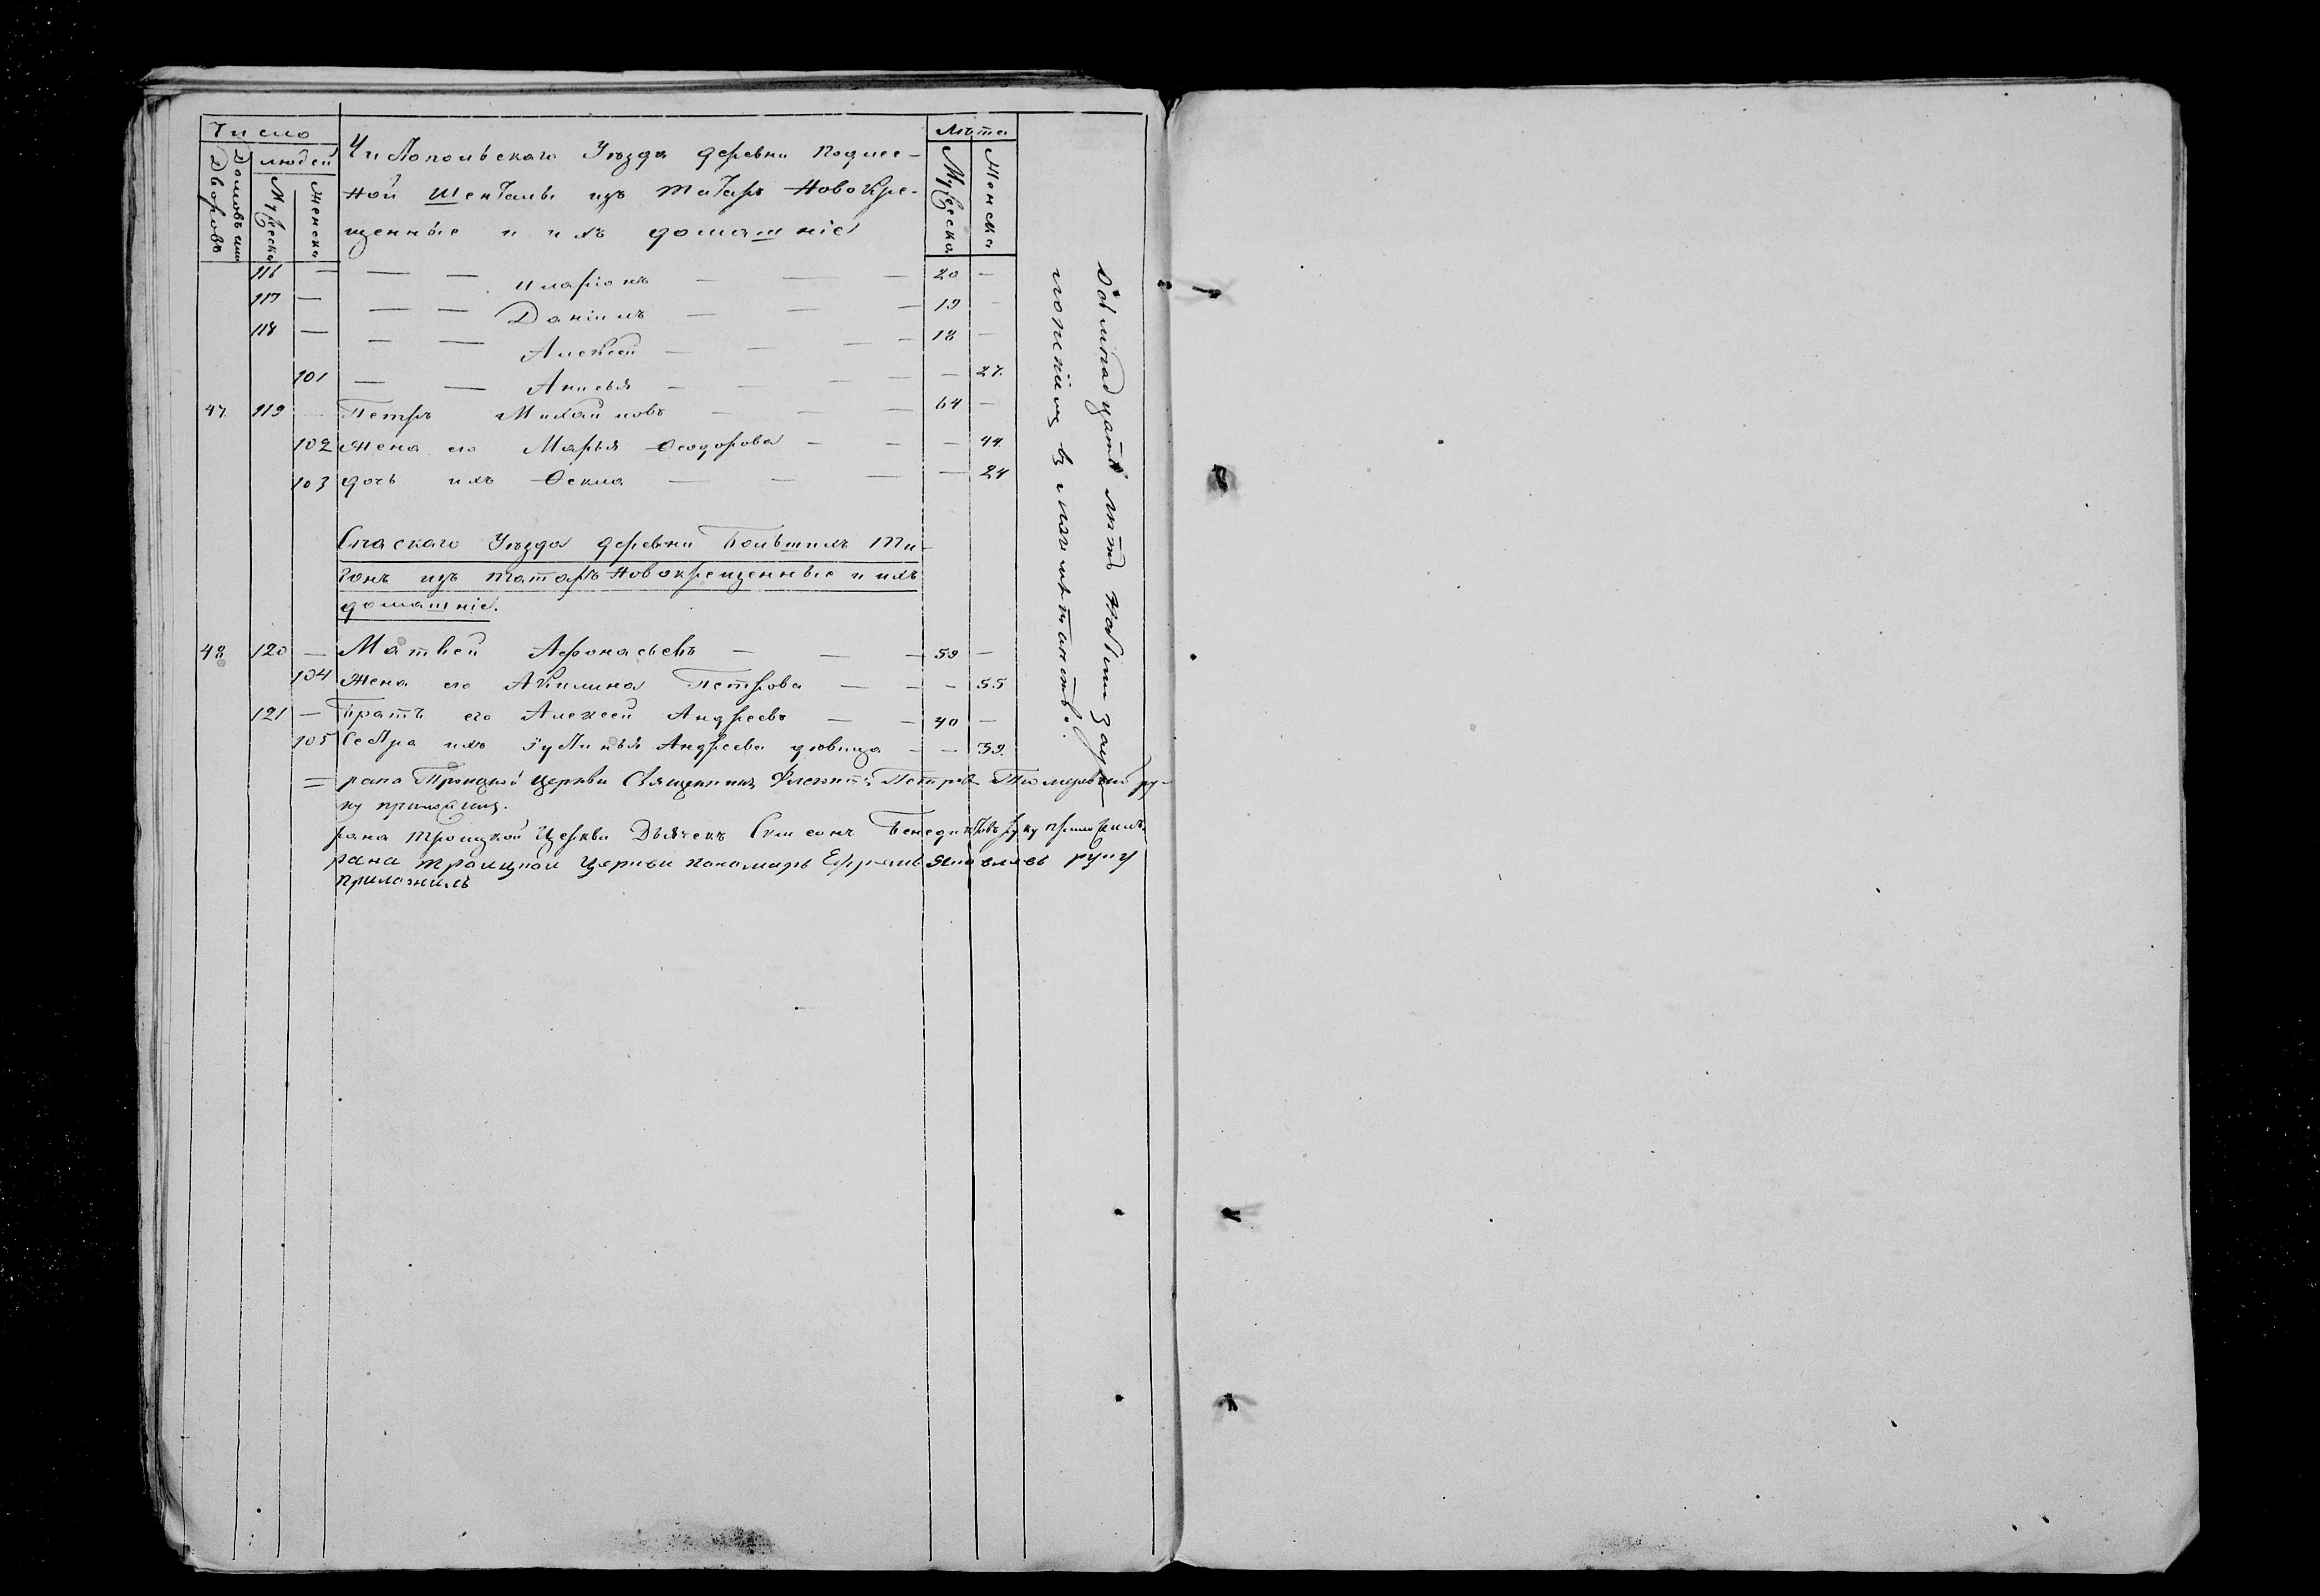 Число
людей
Дворовъ
Мужеска
Женска
Чистопольскаго Уѣзда деревни Подлес-
ной Шенталы изъ татаръ Новокре-
щенные и ихъ домашнiе
Лѣта
Мужеска
Женска
116 — — — иларiонъ — — — 20 —
117 — — — Данiилъ — — — 19 —
118 — — — Алексей — — — 18 —
101 — — Анисья — — — — 27.
47 119 — Петръ Михайловъ — — — 64 —
102 Жена его Марья Ѳеодорова — — — 44.
103 дочь ихъ Ѳекла — — — — 24
Спаскаго Уѣзда деревни Большихъ Ти-
ганъ изъ татаръ Новокрещенные и ихъ
домашнiе.
48 120 — Матвей Афонасьевъ — — — 59 —
104 Жена его Акилина Петрова — — — 55
121 — Братъ его Алексей Андреевъ — — 40 —
105 Сестра ихъ Iустинья Андреева дѣвица — — 39.
= Троицкой церкви Священникъ Петровъ ру-
ку приложилъ.
Троицкой Церкви Дьячекъ Симеонъ Бенедиктовъ руку приложилъ.
Троицкой церкви пономарь Ефремъ Яковлевъ руку
приложилъ